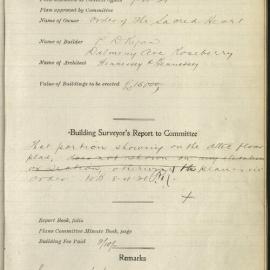 Plan approved by Committee
Name of Owner Order of the Sacred Heart
Name of Builder F. D. Ryan
Dalmeny Ave Rosebery
Name of Architect Hennessy & Hennessy
Value of Buildings to be erected £16,000
Building Surveyor's Report to Committee
That portion showing on the attic floor
plan, does not show on any elevation
or section, otherwise the plans in
order
Report Book, folio
Plans Committee Minute Book, page
Building Fee Paid
Remarks